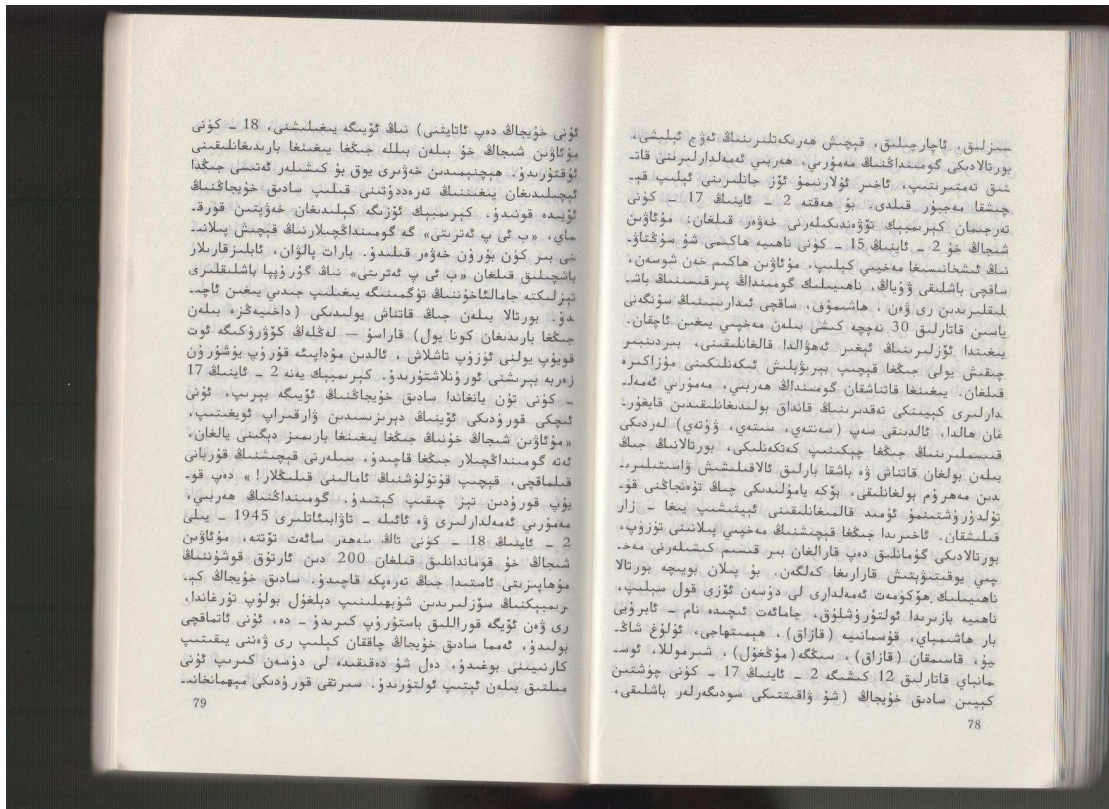 سىزلىق، ئاچارچىلىق، قېچىش ھەرىكەتلىرىنىڭ ئەۋج ئېلىشى،
بورتالادىكى گومىنداڭنىڭ مەمۇرىي، ھەربىي ئەمەلدارلىرىنى قات-
تىق تەمتىرىتىپ، ئاخىر ئۇلارنىمۇ ئۆز جانلىرىنى ئېلىپ قې-
چىشقا مەجبۇر قىلدى. بۇ ھەقتە 2 - ئاينىڭ 17 - كۈنى
تەرجىمان كېرىمبېك تۆۋەندىكىلەرنى خەۋەر قىلغان: مۇئاۋىن
شىجاڭ خۇ 2 - ئاينىڭ 15 - كۈنى ناھىيە ھاكىمى شۇ سۇڭتاۋ-
نىڭ ئىشخانىسىغا مەخپىي كېلىپ، مۇئاۋىن ھاكىم خەن شوسەن،
ساقچى باشلىقى ۋۇياڭ، ناھىيىلىك گومىنداڭ پىرقىسىنىڭ باش-
لىقلىرىدىن رى ۋەن، ھاشىموف، ساقچى ئىدارىسىنىڭ سۇنگەنى
ياسىن قاتارلىق 30 نەچچە كىشى بىلەن مەخپىي يىغىن ئاچقان.
يىغىندا ئۆزلىرىنىڭ ئېغىر ئەھۋالدا قالغانلىقىنى، بىردىنبىر
چىقىش يولى جىڭغا قېچىپ بېرىۋېلىش ئىكەنلىكىنى مۇزاكىرە
قىلغان. يىغىنغا قاتناشقان گومىنداڭ ھەربىي، مەمۇرىي ئەمەل-
دارلىرى كېيىنكى تەقدىرىنىڭ قانداق بولىدىغانلىقىدىن قايغۇر-
غان ھالدا، ئالدىنقى سەپ (سەنتەي، سىتەي، ۋۇتەي) لەردىكى
قىسىملىرىنىڭ جىڭغا چېكىنىپ كەتكەنلىكى، بورتالانىڭ جىڭ
بىلەن بولغان قاتناش ۋە باشقا بارلىق ئالاقىلىشىش ۋاسىتىلىرى-
دىن مەھرۇم بولغانلىقى، بۆكە يامۇلىدىكى چىڭ تۇەنجاڭنى قۇ-
تۇلدۇرۇشتىنمۇ ئۈمىد قالمىغانلىقىنى ئېيتىشىپ يىغا - زار
قىلىشقان. ئاخىردا جىڭغا قېچىشنىڭ مەخپىي پىلانىنى تۈزۈپ،
بورتالادىكى گۇمانلىق دەپ قارالغان بىر قىسىم كىشىلەرنى مەخ-
پىي يوقىتىۋېتىش قارارىغا كەلگەن. بۇ پىلان بويىچە بورتالا
ناھىيىلىك ھۆكۈمەت ئەمەلدارى لى دۇسەن ئۆزى قول سېلىپ،
ناھىيە بازىرىدا ئولتۇرۇشلۇق، جامائەت ئىچىدە نام - ئابرۇيى
بار ھاشىمباي، قۇسمانىيە (قازاق)، ھېمىتھاجى، ئۇلۇغ شاڭ-
يۇ، قاسىمقان (قازاق)، سىڭگە(مۇڭغۇل)، شىرموللا، ئوس-
مانباي قاتارلىق 12 كىشىگە 2 - ئاينىڭ 17 - كۈنى چۈشتىن
كېيىن سادىق خۇيجاڭ (شۇ ۋاقىتتىكى سودىگەرلەر باشلىقى،
78
ئۇنى خۇيجاڭ دەپ ئاتايتتى) نىڭ ئۆيىگە يىغىلىشنى، 18 - كۈنى
مۇئاۋىن شىجاڭ خۇ بىلەن بىللە جىڭغا يىغىنغا بارىدىغانلىقىنى
ئۇقتۇرىدۇ. ھېچنېمىدىن خەۋىرى يوق بۇ كىشىلەر ئەتىسى جىڭدا
ئېچىلىدىغان يىغىننىڭ تەرەددۇتىنى قىلىپ سادىق خۇيجاڭنىڭ
ئۆيىدە قونىدۇ. كېرىمبېك ئۆزىگە كېلىدىغان خەۋپتىن قورق-
ماي، «ب ئى پ ئەترىتى» گە گومىنداڭچىلارنىڭ قېچىش پىلانى-
نى بىر كۈن بۇرۇن خەۋەر قىلىدۇ. بارات پالۋان، ئابلىزقارىلار
باشچىلىق قىلغان «ب ئى پ ئەترىتى» نىڭ گۇرۇپپا باشلىقلىرى
تېزلىكتە جامالئاخۇننىڭ تۈگمىنىگە يىغىلىپ جىددىي يىغىن ئاچى-
دۇ. بورتالا بىلەن جىڭ قاتناش يولىدىكى (داخىيەگزە بىلەن
جىڭغا بارىدىغان كونا يول) قاراسۇ — لەڭلەڭ كۆۋرۈكىگە ئوت
قويۇپ يولنى ئۈزۈپ تاشلاش، ئالدىن مۇداپىئە قۇرۇپ يوشۇرۇن
زەربە بېرىشنى ئورۇنلاشتۇرىدۇ. كېرىمبېك يەنە 2 - ئاينىڭ 17
- كۈنى تۈن يانغاندا سادىق خۇيجاڭنىڭ ئۆيىگە بېرىپ، ئۇنى
ئىچكى قورۇدىكى ئۆينىڭ دېرىزىسىدىن ۋارقىراپ ئويغىتىپ،
«مۇئاۋىن شىجاڭ خۇنىڭ جىڭغا يىغىنغا بارىمىز دېگىنى يالغان،
ئەتە گومىنداڭچىلار جىڭغا قاچىدۇ، سىلەرنى قېچىشنىڭ قۇربانى
قىلماقچى، قېچىپ قۇتۇلۇشنىڭ ئامالىنى قىلىڭلار!» دەپ قو-
يۇپ قورۇدىن تېز چىقىپ كېتىدۇ. گومىنداڭنىڭ ھەربىي،
مەمۇرىي ئەمەلدارلىرى ۋە ئائىلە - تاۋابىئاتلىرى 1945 - يىلى
2 - ئاينىڭ 18 - كۈنى تاڭ سەھەر سائەت تۆتتە، مۇئاۋىن
شىجاڭ خۇ قوماندانلىق قىلغان 200 دىن ئارتۇق قوشۇننىڭ
مۇھاپىزىتى ئاستىدا جىڭ تەرەپكە قاچىدۇ. سادىق خۇيجاڭ كې-
رىمبېكنىڭ سۆزلىرىدىن شۈبھىلىنىپ دېلىغۇل بولۇپ تۇرغاندا،
رى ۋەن ئۆيگە قوراللىق باستۇرۇپ كىرىدۇ - دە، ئۇنى ئاتماقچى
بولىدۇ، ئەمما سادىق خۇيجاڭ چاققان كېلىپ رى ۋەننى يىقىتىپ
كارنىيىنى بوغىدۇ، دەل شۇ دەقىقىدە لى دۇسەن كىرىپ ئۇنى
مىلتىق بىلەن ئېتىپ ئولتۈرىدۇ. سىرتقى قورۇدىكى مېھمانخانى-
79